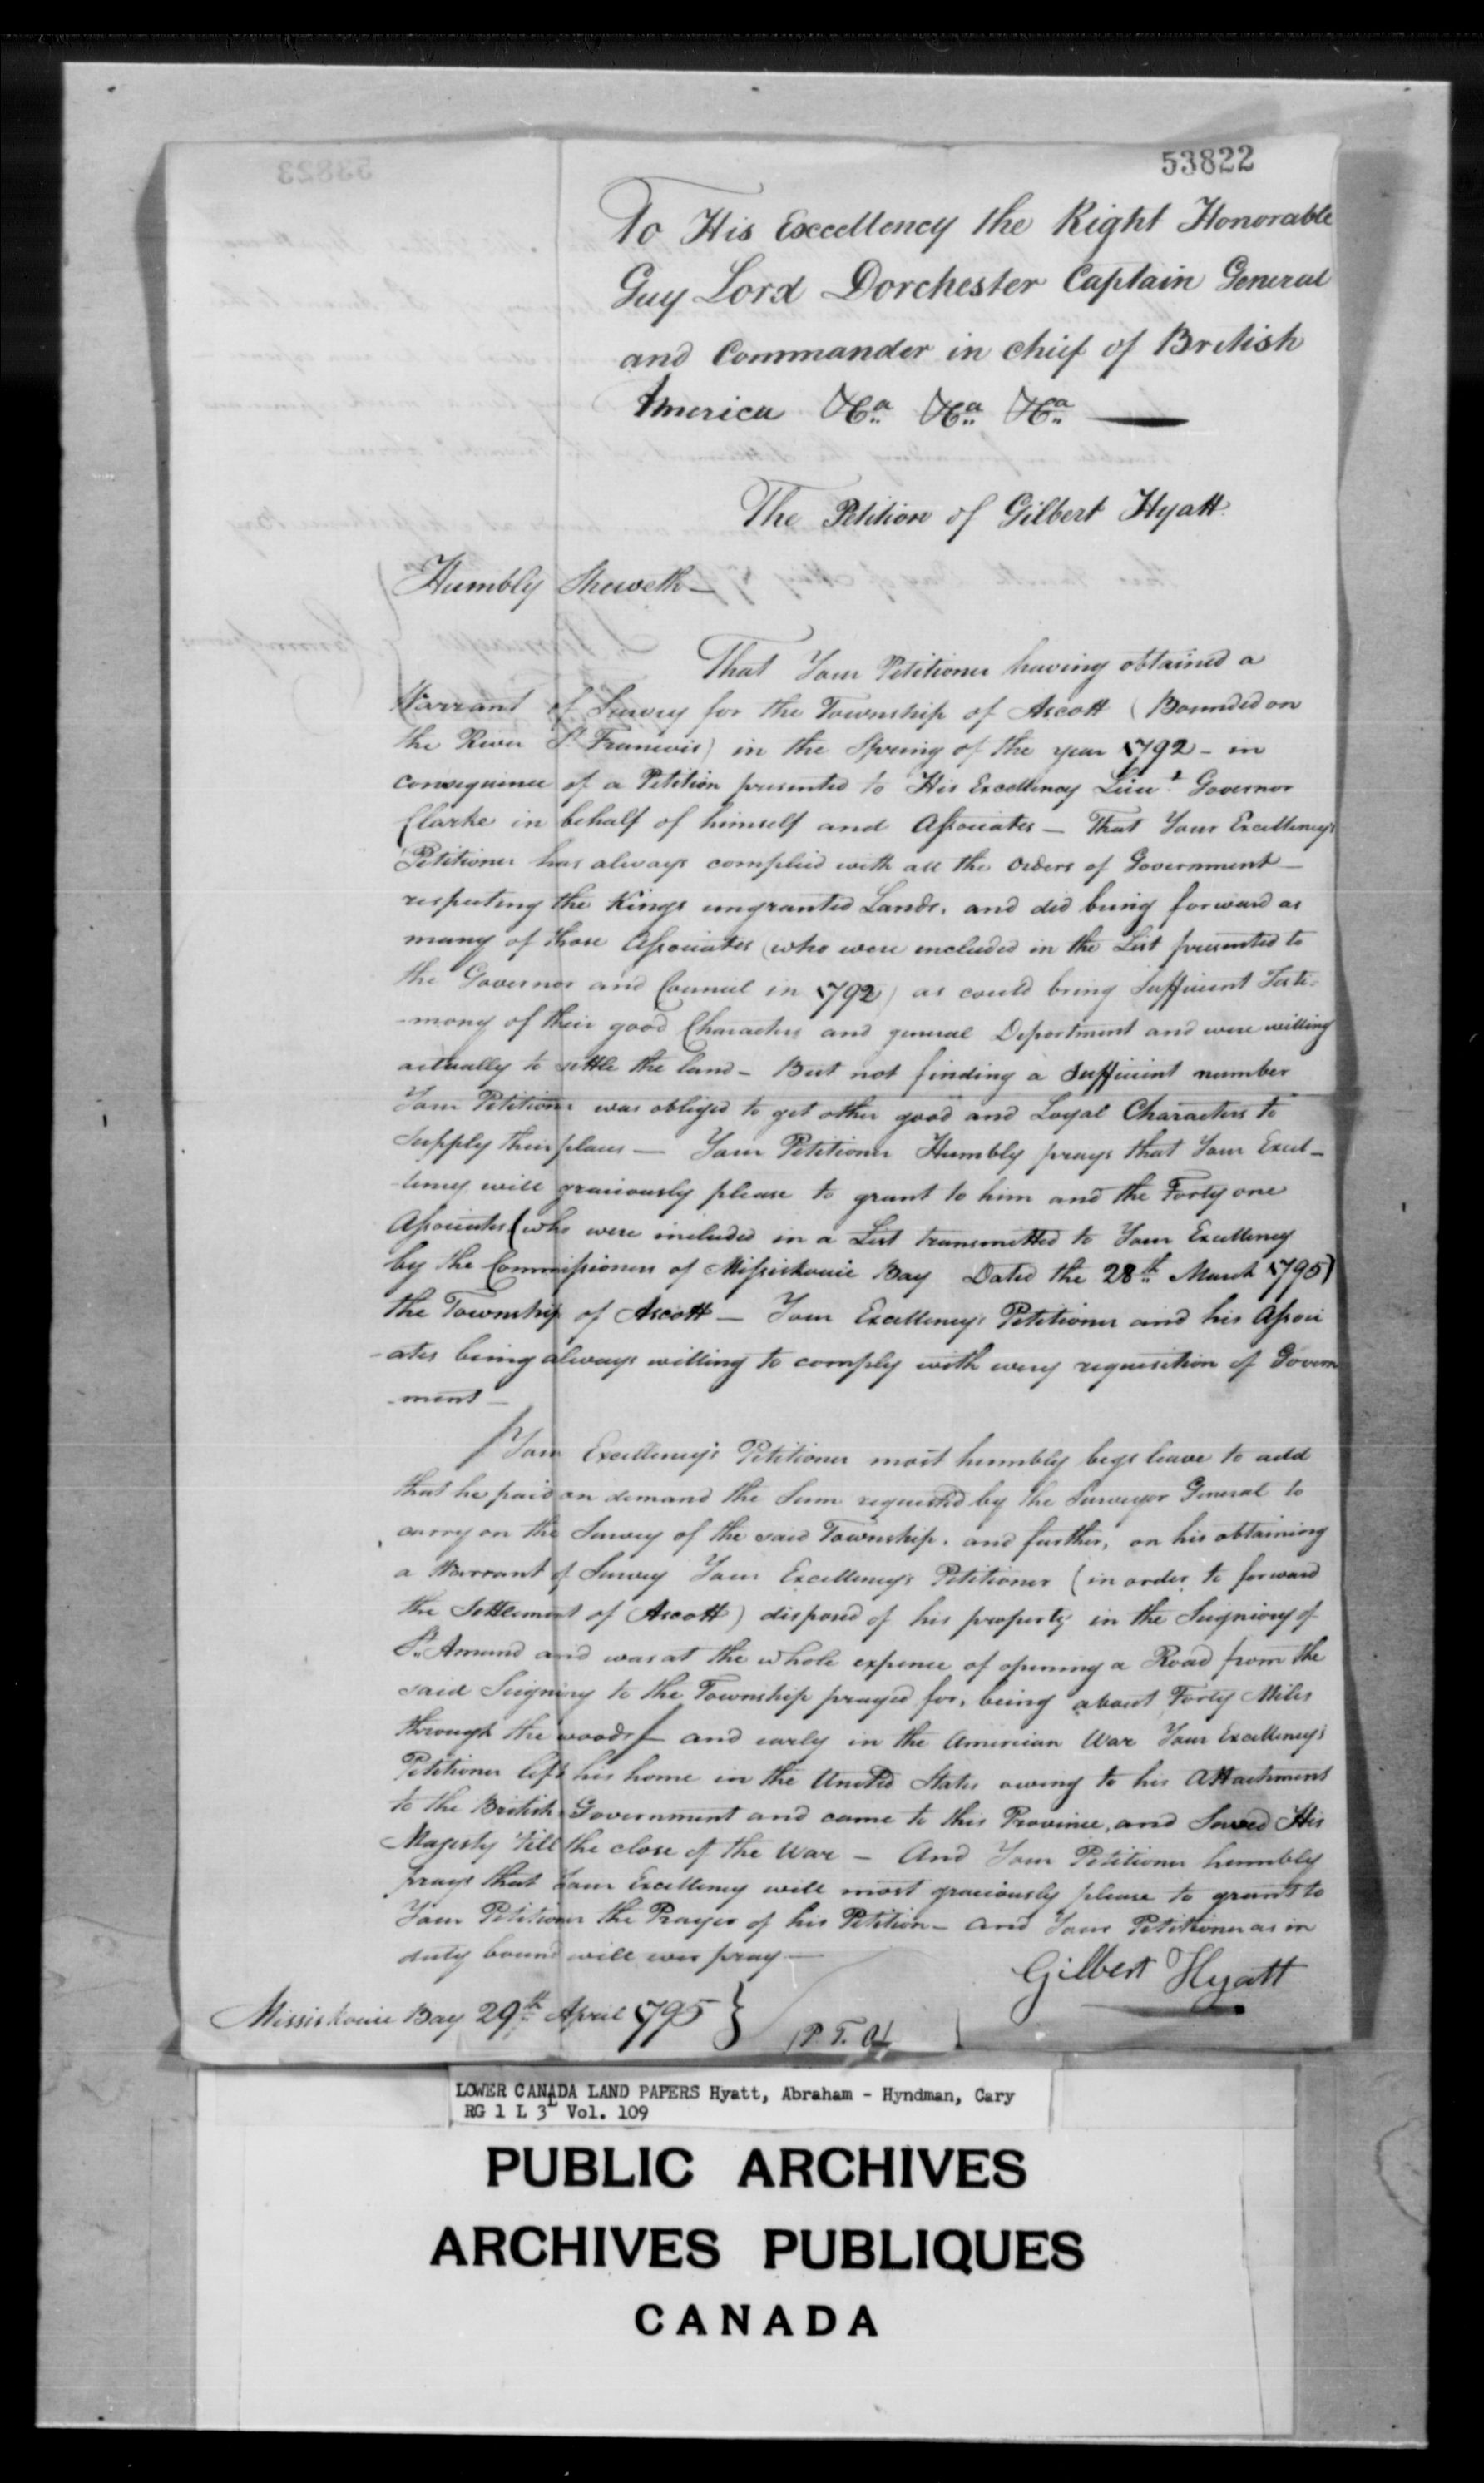 53822
To His Excellency the Right Honorable
Guy Lord Dorchester Captain General
and Commander in chief of British
America &Ca &Ca &Ca
The Petition of Gilbert Hyatt
Humbly Sheweth—
That Your Petitioner having obtained a
Warrant of Survey for the Township of Ascott (Bounded on
the River St. Francois) in the Spring of the year 1792 - in
consequence of a Petition presented to His Excellency Lieut. Governor
Clarke in behalf of himself and Associates — That Your Excellency's
Petitioner has always complied with all the Orders of Government —
respecting the Kings ungranted Lands, and did bring forward as
many of those Associates (who were included in the List presented to
the Governor and Council in 1792) as could bring Sufficient Testi-
-mony of their good Characters and general Deportment and were willing
actually to settle the land - But not finding a Sufficient number
Your Petitioner was obliged to get other good and Loyal Characters to
Supply their places — Your Petitioner Humbly prays that Your Excel-
-lency will graciously please to grant to him and the Forty one
Associates (who were included in a List transmitted to Your Excellency
by the Commissioners of Missiskouie Bay Dated the 28th March 1795)
the Township of Ascott — Your Excellency's Petitioner and his Associ
-ates being always willing to comply with every requisition of Govern
-ment —
Your Excellency's Petitioner most humbly begs leave to add
that he paid on demand the Sum requested by the Surveyor General to
carry on the Survey of the said Township, and further, on his obtaining
a Warrant of Survey Your Excellency's Petitioner (in order to forward
the Settlement of Ascott) disposed of his property in the Seigniory of
St. Amand and was at the whole expence of opening a Road from the
said Seigniory to the Township prayed for, being about Forty Miles
through the woods — and early in the American War Your Excellency's
Petitioner left his home in the United States owing to his Attachment
to the British Government and came to this Province, and Served His
Majesty till the close of the War — And Your Petitioner humbly
prays that Your Excellency will most graciously please to grant to
Your Petitioner the Prayer of his Petition - and Your Petitioner as in
duty bound will ever pray —
Gilbert Hyatt
Missiskouie Bay 29th April 1795 }
P.T.O
LOWER CANADA LAND PAPERS Hyatt, Abraham - Hyndman, Cary
RG 1 L 3L Vol. 109
PUBLIC ARCHIVES
ARCHIVES PUBLIQUES
CANADA